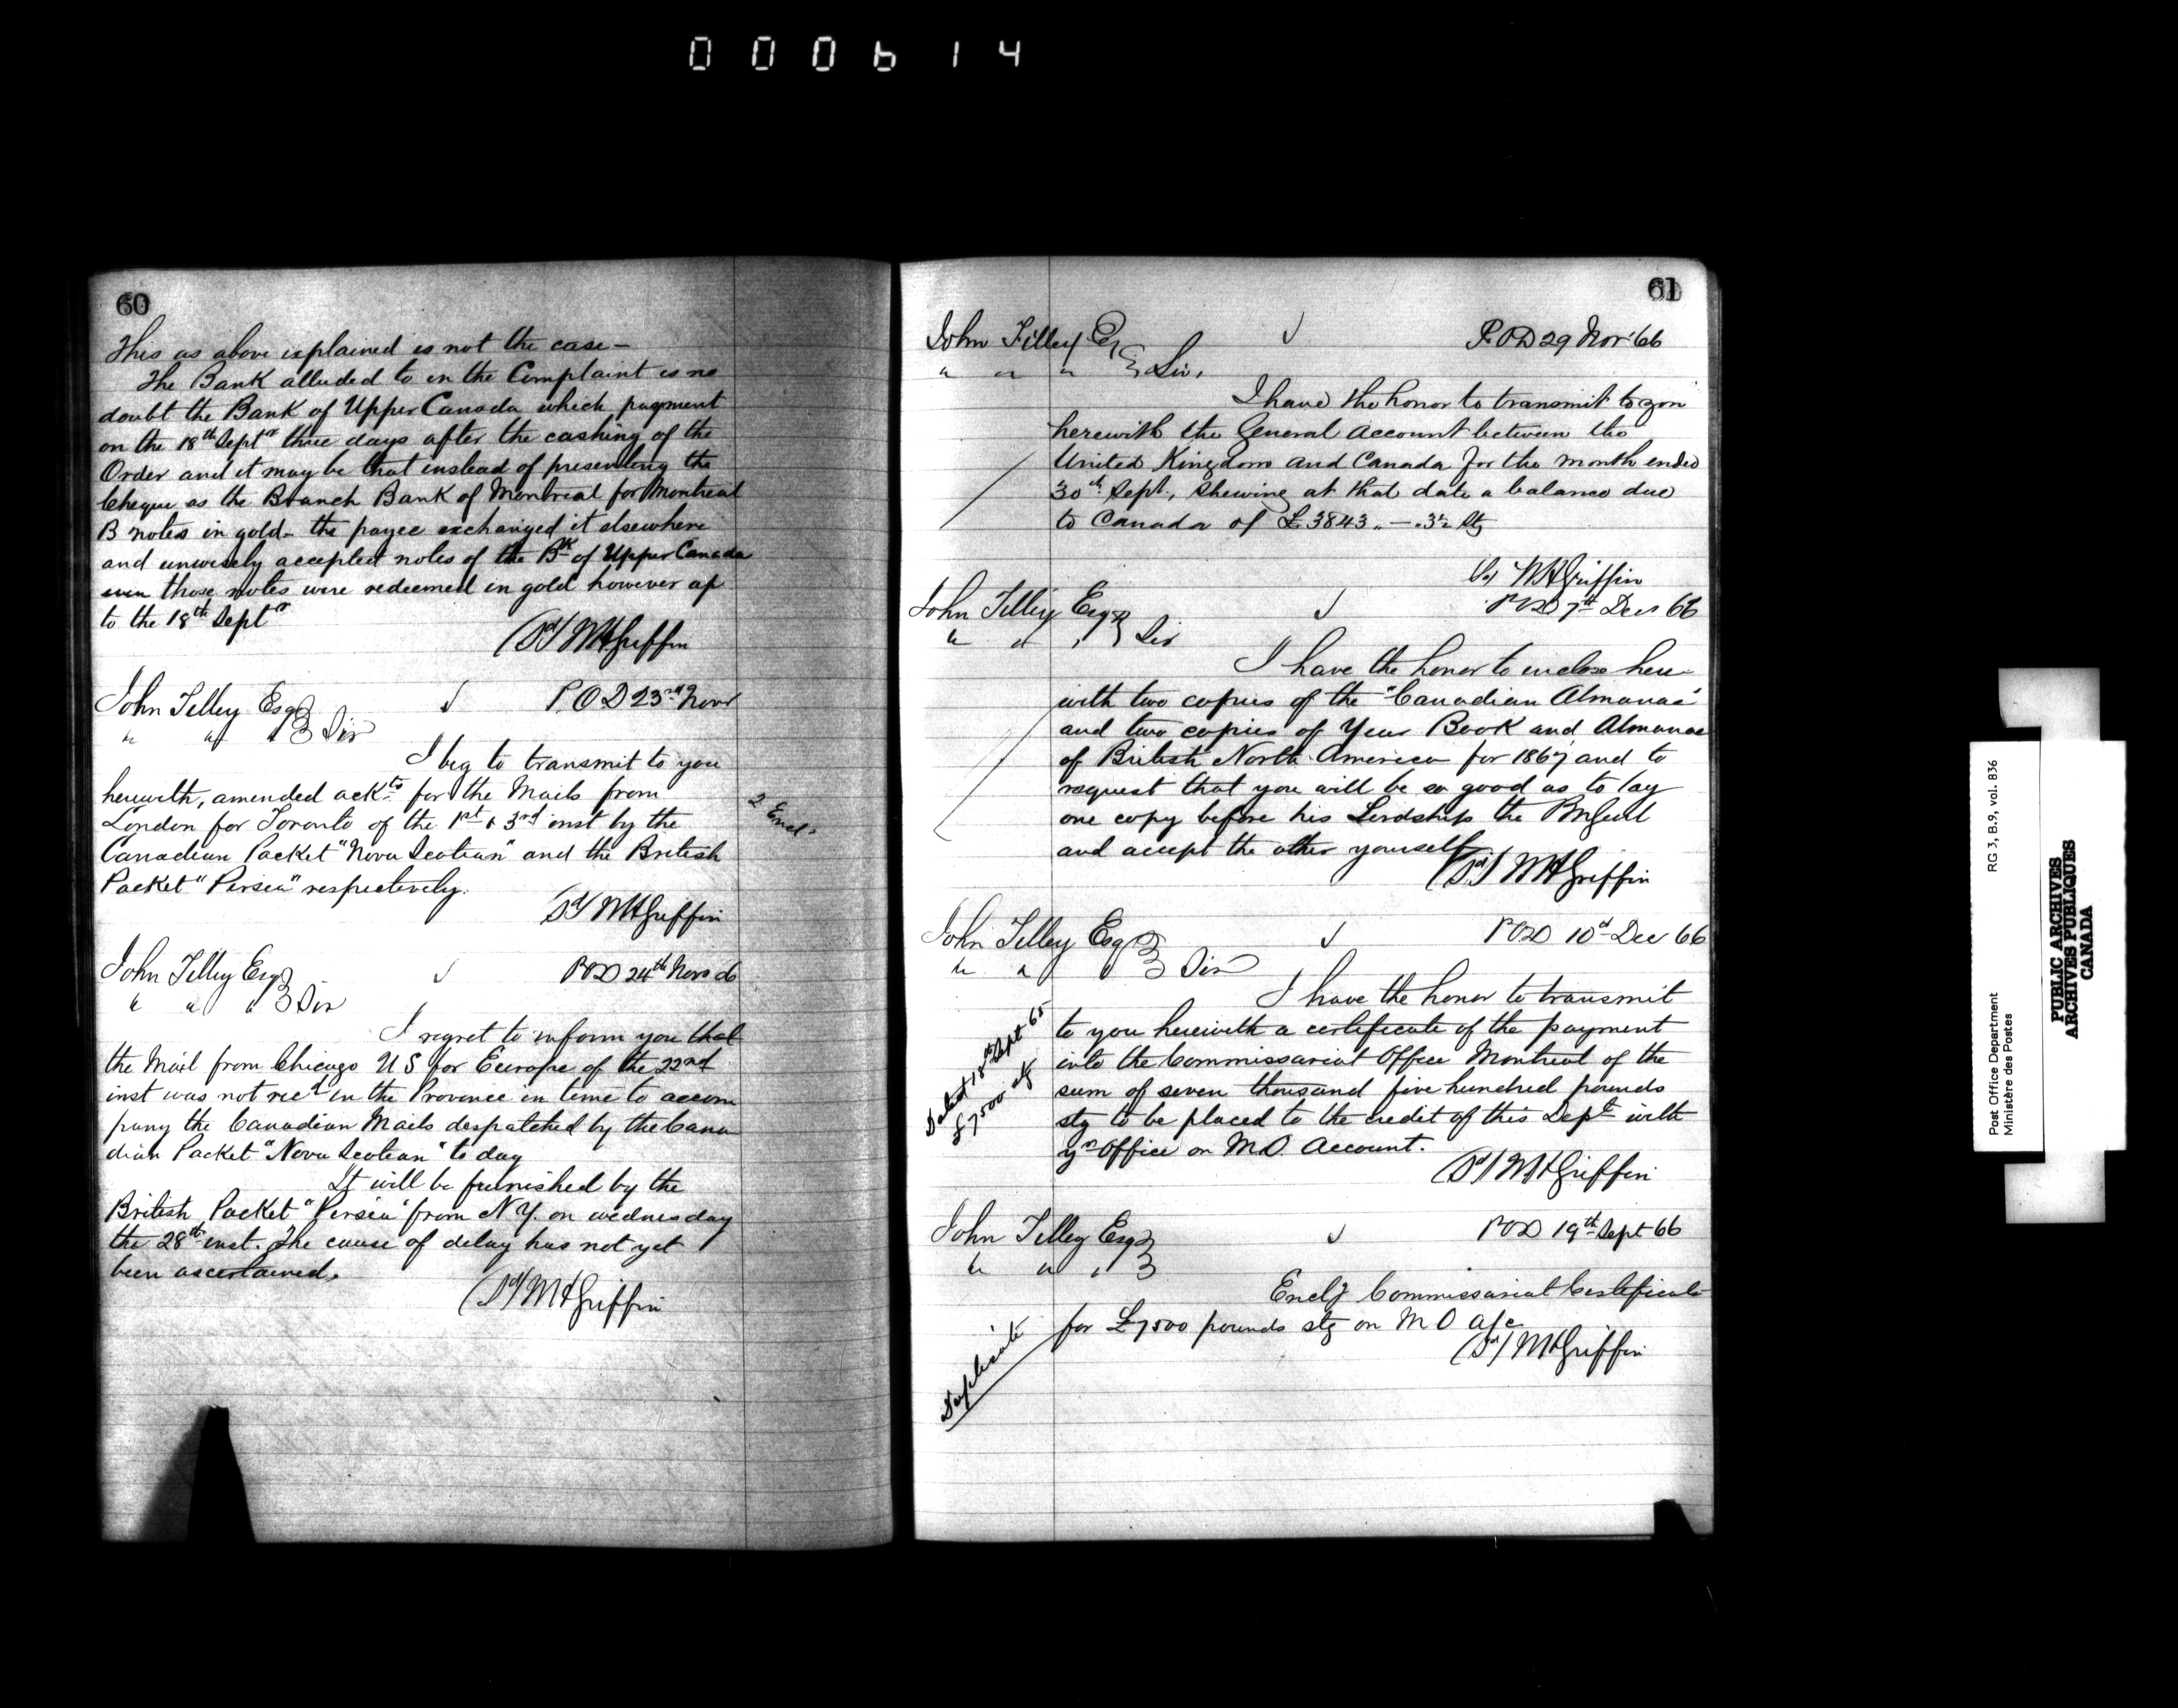 000614
60
This as above explained is not the case —
The Bank alluded to in the Complaint is no
doubt the Bank of Upper Canada which payment
on the 18th Septr three days after the cashing of the
Order and it may be that instead of presenting the
Cheque as the Branch Bank of Montreal for Montreal
B notes in gold - the payee exchanged it elsewhere
and unwisely accepted notes of the Bk of Upper Canada
even those notes were redeemed in gold however up
to the 18th Septr
(Sd) WHGriffin
John Tilley Esq P.O.D 23rd Novr
" " " Sir
I beg to transmit to you
herewith, amended ackts for the Mails from
London for Toronto of the 1st & 3rd inst by the
2 Encls
Canadian Packet "Nova Scotian" and the British
Packet "Persia" respectively.
(Sd) WHGriffin
John Tilley Esq POD 24th Novr 66
" " " Sir
I regret to inform you that
the Mail from Chicago U S for Europe of the 22nd
inst was not recd in the Province in time to accom
pany the Canadian Mails despatched by the Cana
dian Packet "Nova Scotian" to day
It will be furnished by the
British Packet "Persia" from N.Y. on wednesday
the 28th inst. The cause of delay has not yet
been ascertained.
(Sd) WHGriffin
61
John Tilley Esq P.O.D 29 Nov '66
" " " Sir,
I have the honor to transmit to you
herewith the General Account between the
United Kingdom and Canada for the month ended
30th Sept., shewing at that date a balance due
to Canada of £3843 " — . 3½ Stg
(Sd) WHGriffin
John Tilley Esq POD 7th Decr 66
" " " Sir
I have the honor to enclose here-
with two copies of the "Canadian Almanac"
and two copies of Year Book and Almanac
of British North America for 1867 and to
request that you will be so good as to lay
one copy before his Lordship the PmGenl
and accept the other yourself
(Sd) WHGriffin
John Tilley Esq POD 10th Dec 66
" " " Sir
I have the honor to transmit
to you herewith a certificate of the payment
into the Commissariat Office Montreal of the
sum of seven thousand five hundred pounds
stg to be placed to the credit of this Dept with
yr Office on M.O. Account.
(Sd) WHGriffin
Dated 18th Sept 65
£7500 stg
John Tilley Esq POD 19th Sept 66
" " "
Encl Commissariat Certificate
for £7500 pounds stg on M O a/c
(Sd) WHGriffin
Duplicate
Post Office Department
Ministère des Postes
RG 3, B.9, vol. 836
PUBLIC ARCHIVES
ARCHIVES PUBLIQUES
CANADA